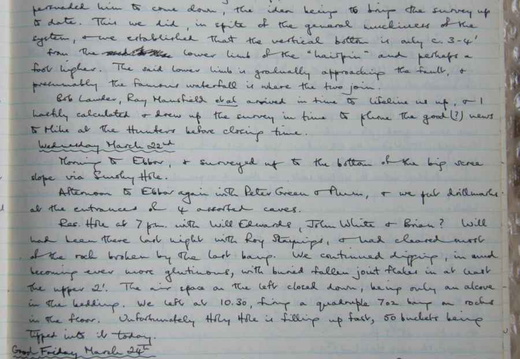 persuaded him to come down, the idea being to bring the survey up
to date. This we did, in spite of the general muckiness of the
system, & we established that the vertical bottom is only c. 3-4'
from the lower limb of the "hairpin" and perhaps a
foot higher. The said lower limb is gradually approaching the fault, &
presumably the famous waterfall is where the two join.
Bob Lander, Ray Mansfield et al arrived in time to lifeline us up, & I
hastily calculated & drew up the survey in time to phone the good (?) news
to Mike at the Hunters before closing time.
Wednesday March 22nd
Morning to Ebbor, & surveyed up to the bottom of the big scree
slope via Smoky Hole.
Afternoon to Ebbor again with Peter Green & Mum, & we put drillmarks
at the entrances of 4 assorted caves.
Res. Hole at 7 pm with Will Edwards, John White & Brian? Will
had been there last night with Roy Staynings, & had cleared most
of the rock broken by the last bang. We continued digging, in mud
becoming ever more glutinous, with buried fallen joint flakes in at least
the upper 2'. The air space on the left closed down, being only an alcove
in the bedding. We left at 10.30, firing a quadruple 7oz bang on rocks
in the floor. Unfortunately Holy Hole is filling up fast, 50 buckets being
tipped into it today.
Good Friday March 24th